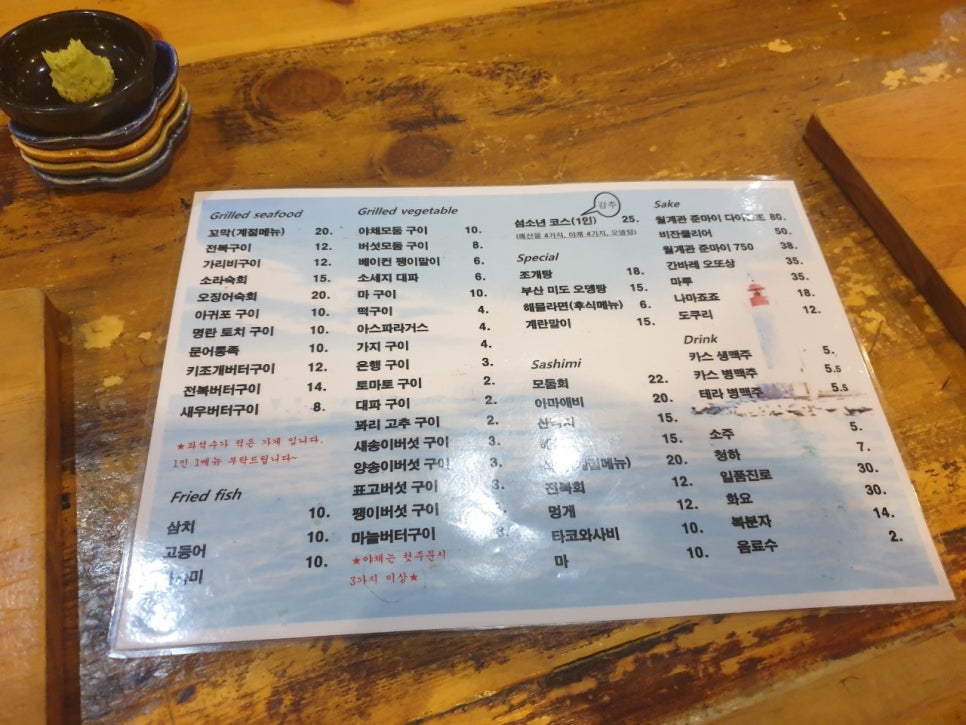 Grilled seafood
꼬막(계절메뉴) 20.
전복구이 12.
가리비구이 12.
소라숙회 15.
오징어숙회 20.
아귀포 구이 10.
명란 토치 구이 10.
문어통족 10.
키조개버터구이 12.
전복버터구이 14.
새우버터구이 8.
★좌석수가 적은 가게 입니다.
1인 1메뉴 부탁드립니다~
Fried fish
삼치 10.
고등어 10.
10.
Grilled vegetable
야채모둠 구이 10.
버섯모둠 구이 8.
베이컨 팽이말이 6.
소세지 대파 6.
마 구이 10.
떡구이 4.
아스파라거스 4.
가지 구이 4.
은행 구이 3.
토마토 구이 2.
대파 구이 2.
꽈리 고추 구이 2.
새송이버섯 구이 3.
양송이버섯 구이 3.
표고버섯 구이 3.
팽이버섯 구이
마늘버터구이 3.
★야채는 첫주문시
3가지 이상★
강추
섬소년 코스(1인) 25.
(해산물 4가지, 야채 4가지, 오뎅탕)
Special
조개탕 18.
부산 미도 오뎅탕 15.
해물라면(후식메뉴) 6.
계란말이 15.
Sashimi
모둠회 22.
아마애비 20.
15.
15.
20.
전복회 12.
멍게 12.
타코와사비 10.
마 10.
Sake
월계관 준마이 다이긴조 80.
비잔클리어 50.
월계관 준마이 750 38.
간바레 오또상 35.
마루 35.
나마죠죠 18.
도쿠리 12.
Drink
카스 생맥주 5.
카스 병맥주 5.5
테라 병맥주 5.5
소주 5.
청하 7.
일품진로 30.
화요 30.
복분자 14.
음료수 2.